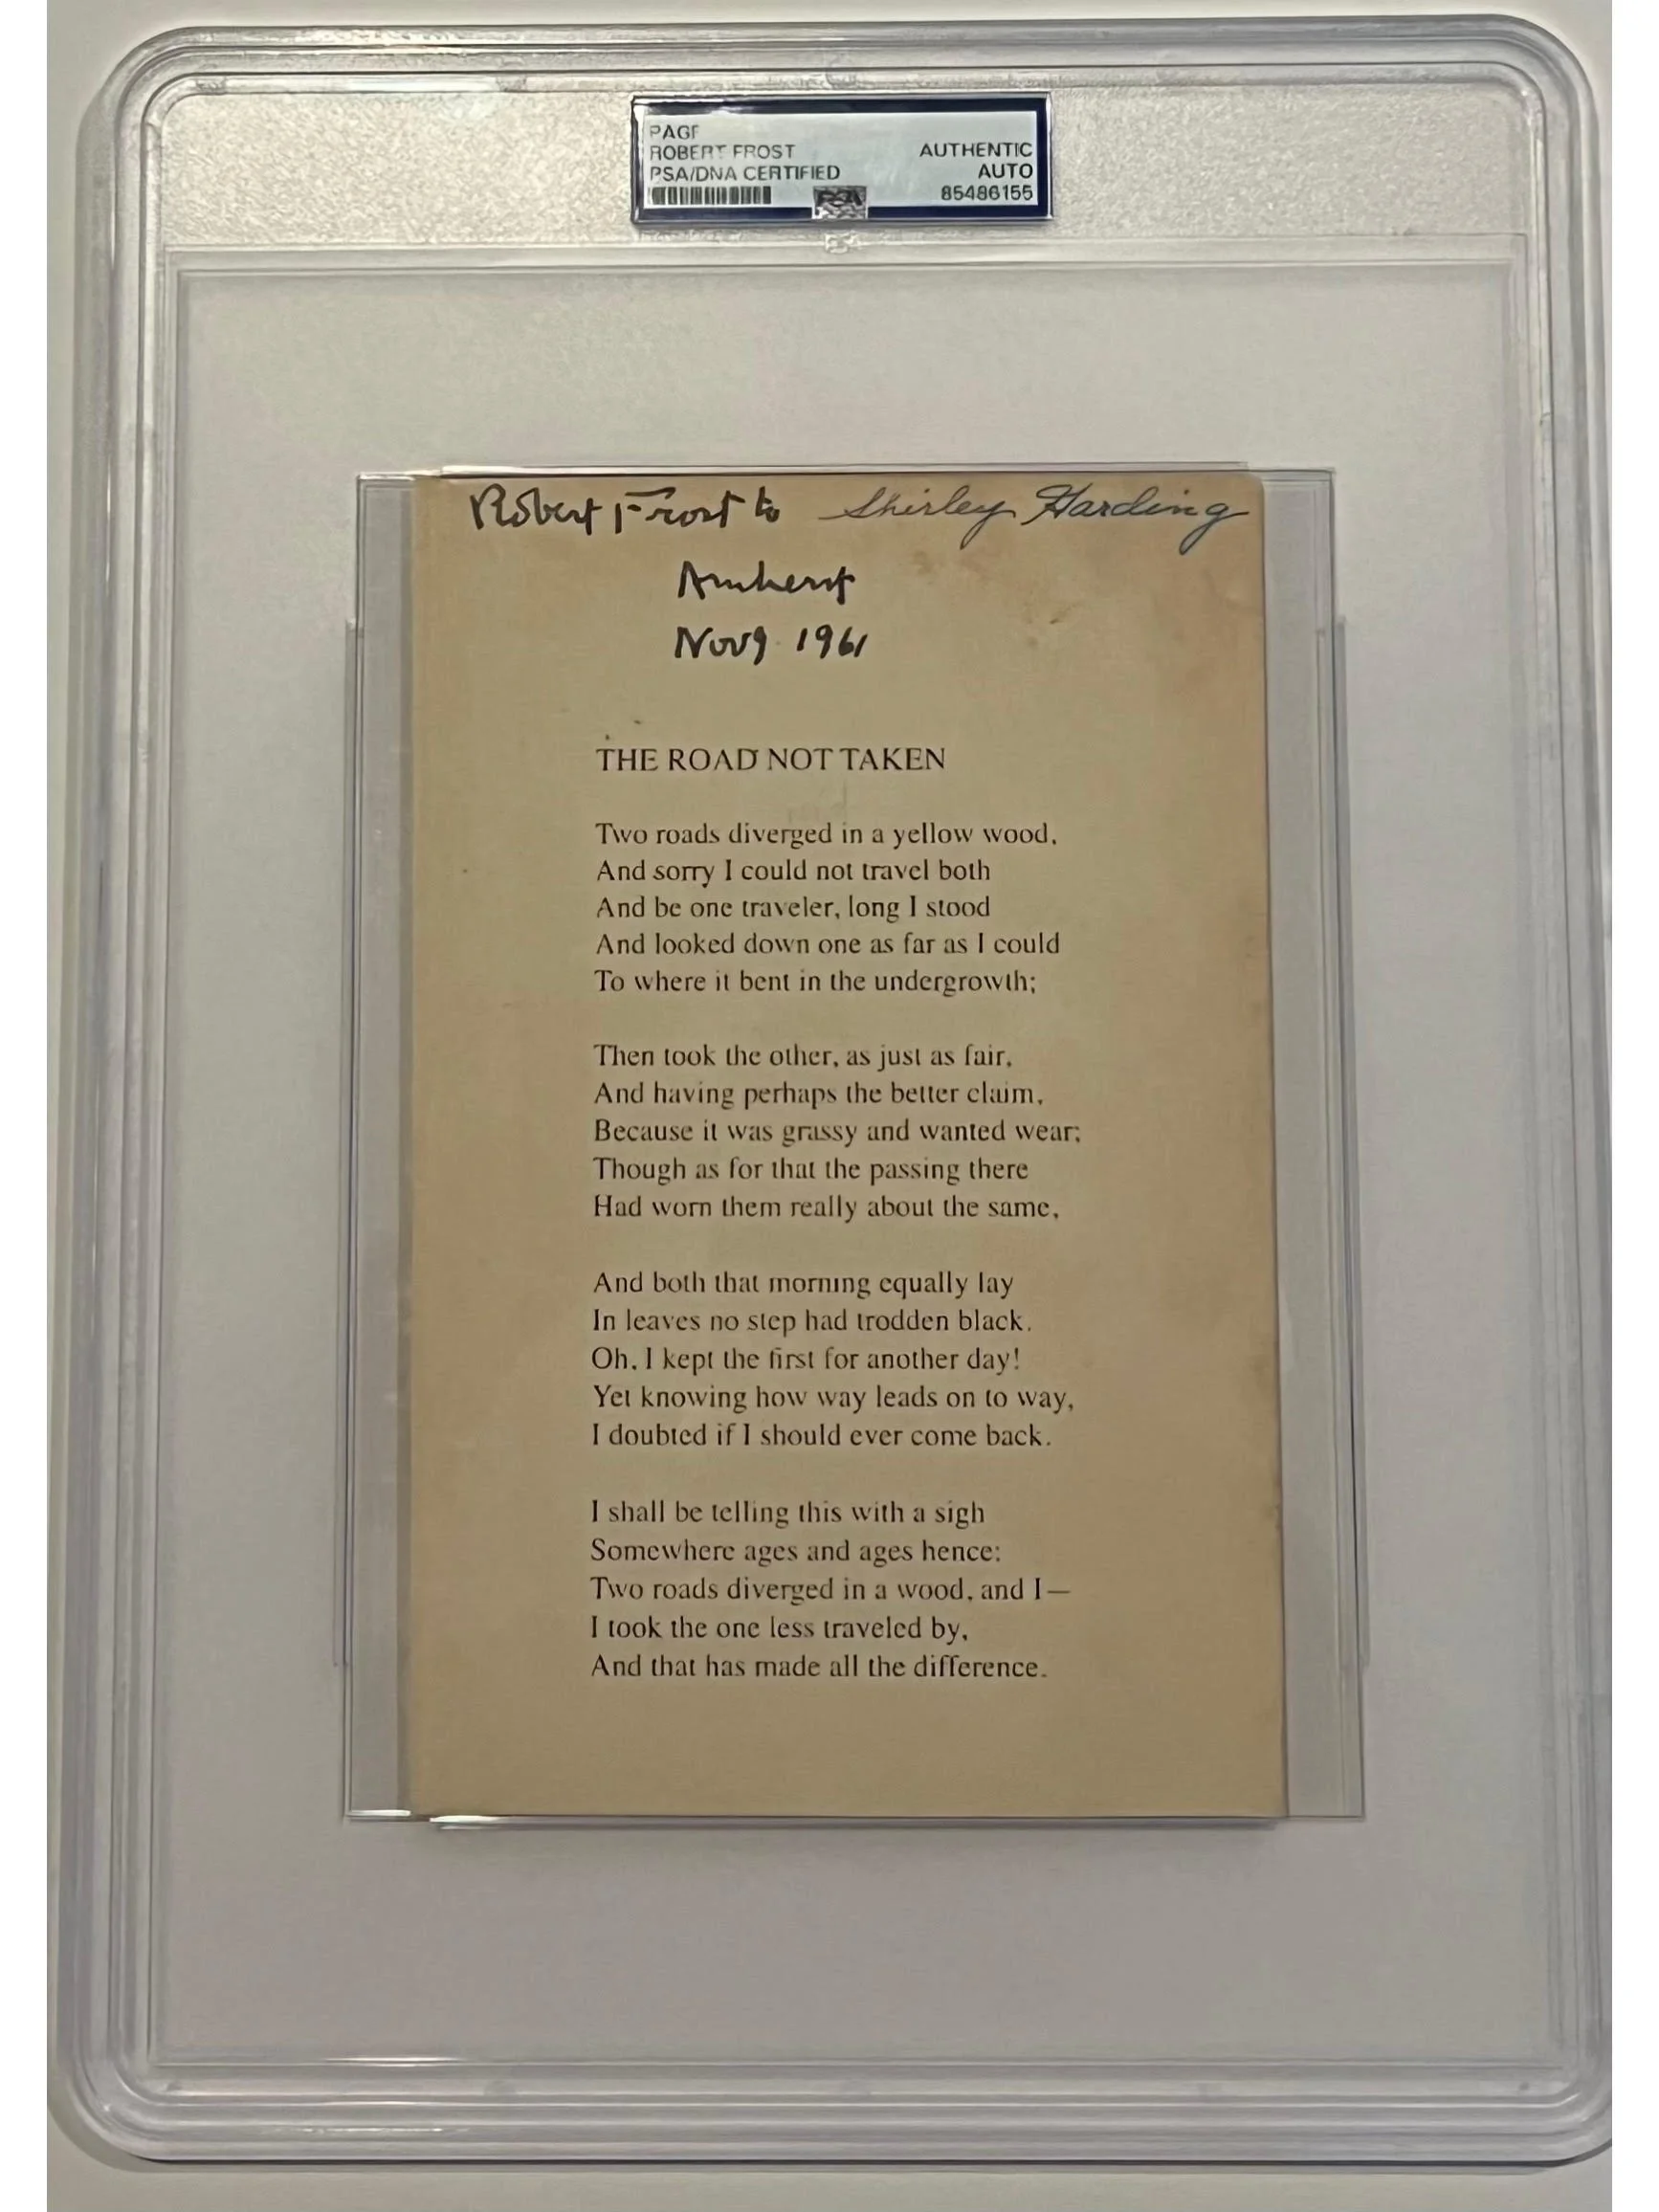 PAGE
ROBERT FROST
PSA/DNA CERTIFIED
AUTHENTIC
AUTO
85486155
PSA
Robert Frost to Shirley Harding
Amherst
Nov 9 1961
THE ROAD NOT TAKEN
Two roads diverged in a yellow wood,
And sorry I could not travel both
And be one traveler, long I stood
And looked down one as far as I could
To where it bent in the undergrowth;
Then took the other, as just as fair,
And having perhaps the better claim,
Because it was grassy and wanted wear;
Though as for that the passing there
Had worn them really about the same,
And both that morning equally lay
In leaves no step had trodden black.
Oh, I kept the first for another day!
Yet knowing how way leads on to way,
I doubted if I should ever come back.
I shall be telling this with a sigh
Somewhere ages and ages hence:
Two roads diverged in a wood, and I—
I took the one less traveled by,
And that has made all the difference.